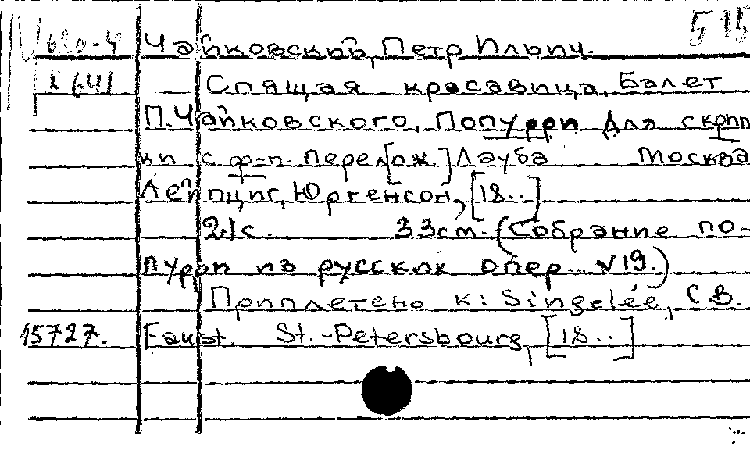 Чайковский, Петр Ильич. 515
1641 Спящая красавица. Балет
П. Чайковского. Попурри для скрип
ки с ф-п. Перел[ож.] Лауба Москва
Лейпциг, Юргенсон, [18..]
21с. 33см. (Собрание по-
пурри из русских опер №19.)
Приплетено к: Singelée, С.В.
15727. Faust. St.-Petersbourg, [18..]